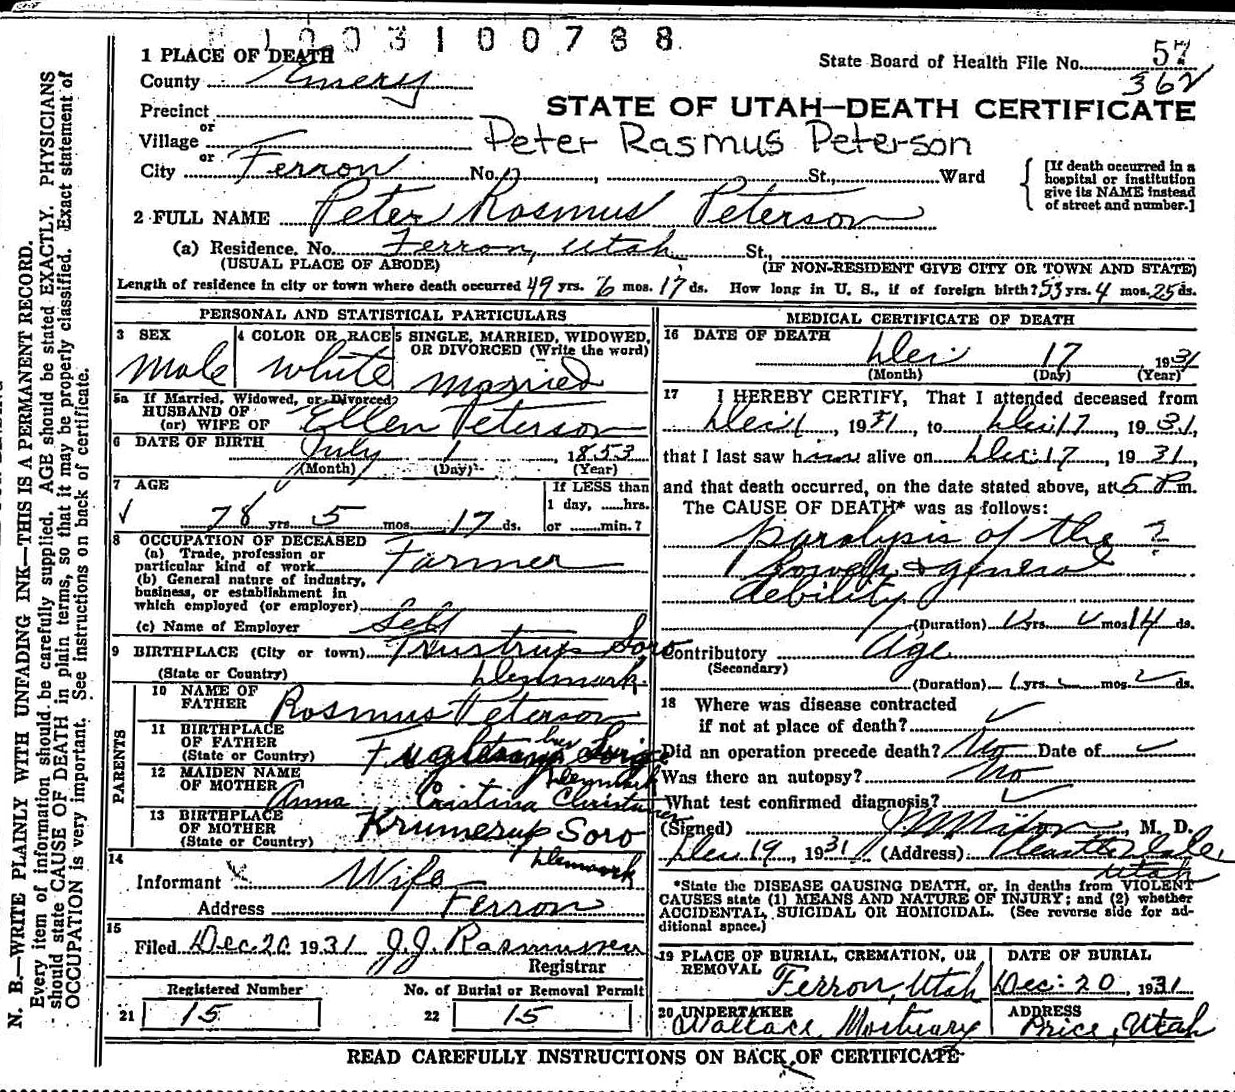 1003100788
1 PLACE OF DEATH
State Board of Health File No. 57
362
County Emery
STATE OF UTAH—DEATH CERTIFICATE
Precinct
or
Village
Peter Rasmus Peterson
or
City Ferron No. St., Ward
[If death occurred in a hospital or institution give its NAME instead of street and number.]
2 FULL NAME Peter Rasmus Peterson
(a) Residence. No. Ferron, Utah St.,
(USUAL PLACE OF ABODE) (IF NON-RESIDENT GIVE CITY OR TOWN AND STATE)
Length of residence in city or town where death occurred 49 yrs. 6 mos. 17 ds. How long in U. S., if of foreign birth? 53 yrs. 4 mos. 25 ds.
PERSONAL AND STATISTICAL PARTICULARS
3 SEX
Male
4 COLOR OR RACE
White
5 SINGLE, MARRIED, WIDOWED,
OR DIVORCED (Write the word)
Married
5a If Married, Widowed, or Divorced
HUSBAND OF
(or) WIFE OF Ellen Peterson
6 DATE OF BIRTH July 1, 1853
(Month) (Day) (Year)
7 AGE
78 yrs. 5 mos. 17 ds.
If LESS than
1 day, hrs.
or min.?
8 OCCUPATION OF DECEASED
(a) Trade, profession or
particular kind of work Farmer
(b) General nature of industry,
business, or establishment in
which employed (or employer)
(c) Name of Employer Self
9 BIRTHPLACE (City or town) Soro
(State or Country) Denmark
PARENTS
10 NAME OF
FATHER Rasmus Peterson
11 BIRTHPLACE
OF FATHER
(State or Country) Denmark
12 MAIDEN NAME
OF MOTHER Anna Cristina
13 BIRTHPLACE
OF MOTHER Krumerup Soro
(State or Country) Denmark
14
Informant Wife
Address Ferron
15
Filed Dec. 20 1931 J.J. Rasmussen
Registrar
Registered Number
21 15
No. of Burial or Removal Permit
22 15
MEDICAL CERTIFICATE OF DEATH
16 DATE OF DEATH
Dec 17 1931
(Month) (Day) (Year)
17 I HEREBY CERTIFY, That I attended deceased from
Dec 1, 1931, to Dec 17, 1931,
that I last saw him alive on Dec. 17, 1931,
and that death occurred, on the date stated above, at 5 P.m.
The CAUSE OF DEATH* was as follows:
paralysis of the ?
bowels & general
debility
(Duration) yrs. mos. 14 ds.
Contributory Age
(Secondary)
(Duration) yrs. mos. ds.
18 Where was disease contracted
if not at place of death?
Did an operation precede death? No Date of
Was there an autopsy? No
What test confirmed diagnosis?
(Signed) M. D.
Dec 19, 1931 (Address) Castle Dale,
Utah
*State the DISEASE CAUSING DEATH, or, in deaths from VIOLENT
CAUSES state (1) MEANS AND NATURE OF INJURY; and (2) whether
ACCIDENTAL, SUICIDAL OR HOMICIDAL. (See reverse side for ad-
ditional space.)
19 PLACE OF BURIAL, CREMATION, OR
REMOVAL
Ferron, Utah
DATE OF BURIAL
Dec. 20, 1931
20 UNDERTAKER
Wallace Mortuary
ADDRESS
Price, Utah
READ CAREFULLY INSTRUCTIONS ON BACK OF CERTIFICATE
N. B.—WRITE PLAINLY WITH UNFADING INK—THIS IS A PERMANENT RECORD.
Every item of information should be carefully supplied. AGE should be stated EXACTLY. PHYSICIANS
should state CAUSE OF DEATH in plain terms, so that it may be properly classified. Exact statement of
OCCUPATION is very important. See instructions on back of certificate.